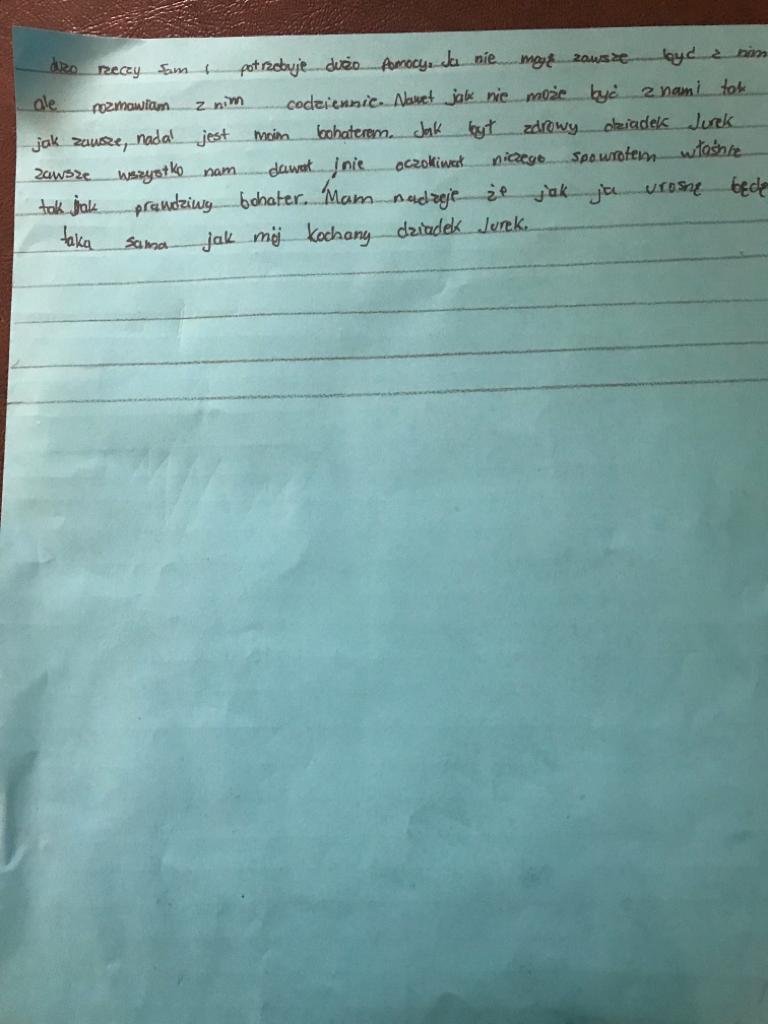 dużo rzeczy sam i potrzebuje dużo pomocy. Ja nie mogę zawsze być z nim
ale rozmawiam z nim codziennie. Nawet jak nie może być z nami tak
jak zawsze, nadal jest moim bohaterem. Jak był zdrowy dziadek Jurek
zawsze wszystko nam dawał i nie oczekiwał niczego spowrotem właśnie
tak jak prawdziwy bohater. Mam nadzeje że jak ja urosnę będę
taka sama jak mój kochany dziadek Jurek.